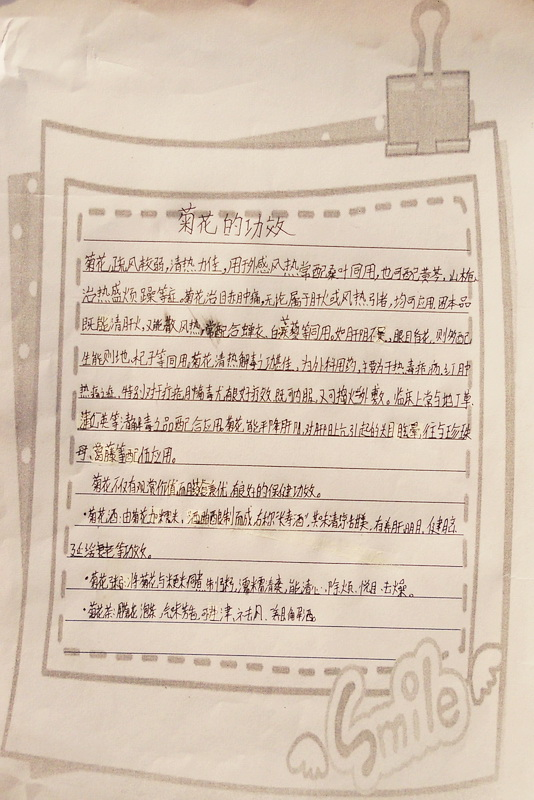 菊花的功效
菊花疏风较弱,清热力佳,用于外感风热常配桑叶同用,也可配黄芩,山栀
治热盛烦躁等症。菊花治目赤肿痛,无论属于肝火或风热引者,均可应用因本品
既能清肝火,又能散风热,常配合蝉衣,白蒺藜等同用。如肝阴不足,眼目昏花,则多配
生熟地,杞子等同用。菊花清热解毒之功甚佳,为外科用药,主要为于热毒疮疡,红肿
热痛之症,特别对于疔疮肿痛尤有良好疗效,既可内服,又可捣烂外敷。临床上常与地丁草
蒲公英等清解毒之品配合应用。菊花能平降肝阳,对肝阳上亢引起的头目眩晕,往与珍珠
母,葛藤等配伍应用。
菊花不仅有观赏价值而且优有良好的保健功效。
·菊花酒:由菊花加糯米,酒曲酿制而成,古称"长寿酒",其味清凉甜美,有养肝明目,健脑,
延缓衰老等功效。
·菊花粥:将菊花与粳米同煮制粥,濡糯清爽,能清心,除烦,悦目,去燥。
·菊花茶:气味芳香,可生津,祛风
Smile